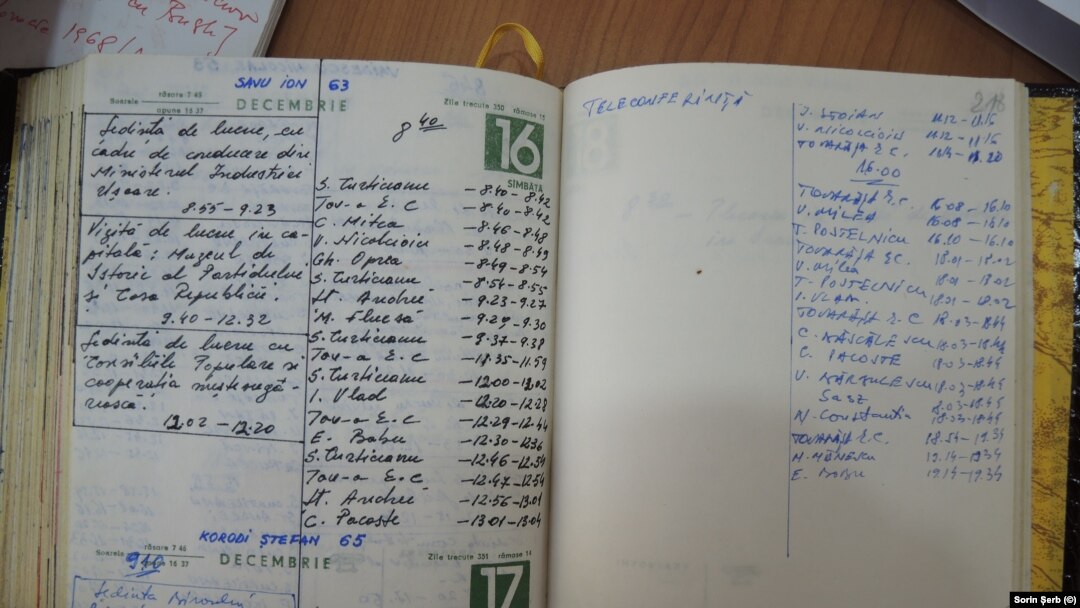 1968/
SAVU ION 63
Soarele răsare 7 45
apune 16 37
DECEMBRIE
Zile trecute 350 rămase 15
16
SIMBĂTĂ
8 40
Ședința de lucru, cu
cadre de conducere din
Ministerul Industriei
Ușoare.
8.55 - 9.23
Vizită de lucru in ca-
pitală: Muzeul de
Istorie al Partidului
și Casa Republicii.
9.40 - 12.32
Ședința de lucru cu
Consiliile Populare și
cooperația meșteșugă-
rească.
12.02 - 12.20
S. Curticeanu - 8.40 - 8.42
Tov-a E. C - 8.40 - 8.42
C. Mitea - 8.46 - 8.48
V. Nicolcioiu - 8.48 - 8.49
Gh. Oprea - 8.49 - 8.54
S. Curticeanu - 8.54 - 8.55
Șt. Andrei - 9.23 - 9.27
M. Flucsă - 9.29 - 9.30
S. Curticeanu - 9.37 - 9.38
Tov-a E. C - 11.59
S. Curticeanu - 12.00 - 12.02
I. Vlad - 12.20 - 12.28
Tov-a E. C - 12.29 - 12.44
E. Bobu - 12.30 - 12.36
S. Curticeanu - 12.46 - 12.54
Tov-a E. C - 12.47 - 12.54
Șt. Andrei - 12.56 - 13.01
C. Pacoste - 13.01 - 13.04
KORODI ȘTEFAN 65
Soarele răsare 7 46
16 37
910
DECEMBRIE
Zile trecute 351 rămase 14
17
Ședința Biroului
TELECONFERINȚĂ
218
I. STOIAN
V. NICOLCIOIU
TOVARĂȘA E.C.
16.00
TOVARĂȘA E.C. 16.08 - 16.10
V. MILEA 16.08 - 16.10
T. POSTELNICU 16.10 - 16.10
TOVARĂȘA E.C. 18.01 - 18.02
V. Milea 18.01 - 18.02
T. POSTELNICU 18.01 - 18.02
I. VLAD
TOVARĂȘA E.C 18.03 - 18.49
C. 18.03 - 18.49
C. PACOSTE 18.03 - 18.49
V. 18.03 - 18.49
Sasz 18.03 - 18.49
N. Constantin 18.03 - 18.49
TOVARĂȘA E.C. 18.54 - 19.34
M. MĂNESCU 19.14 - 19.34
E. Bobu 19.14 - 19.34
Sorin Șerb (©)